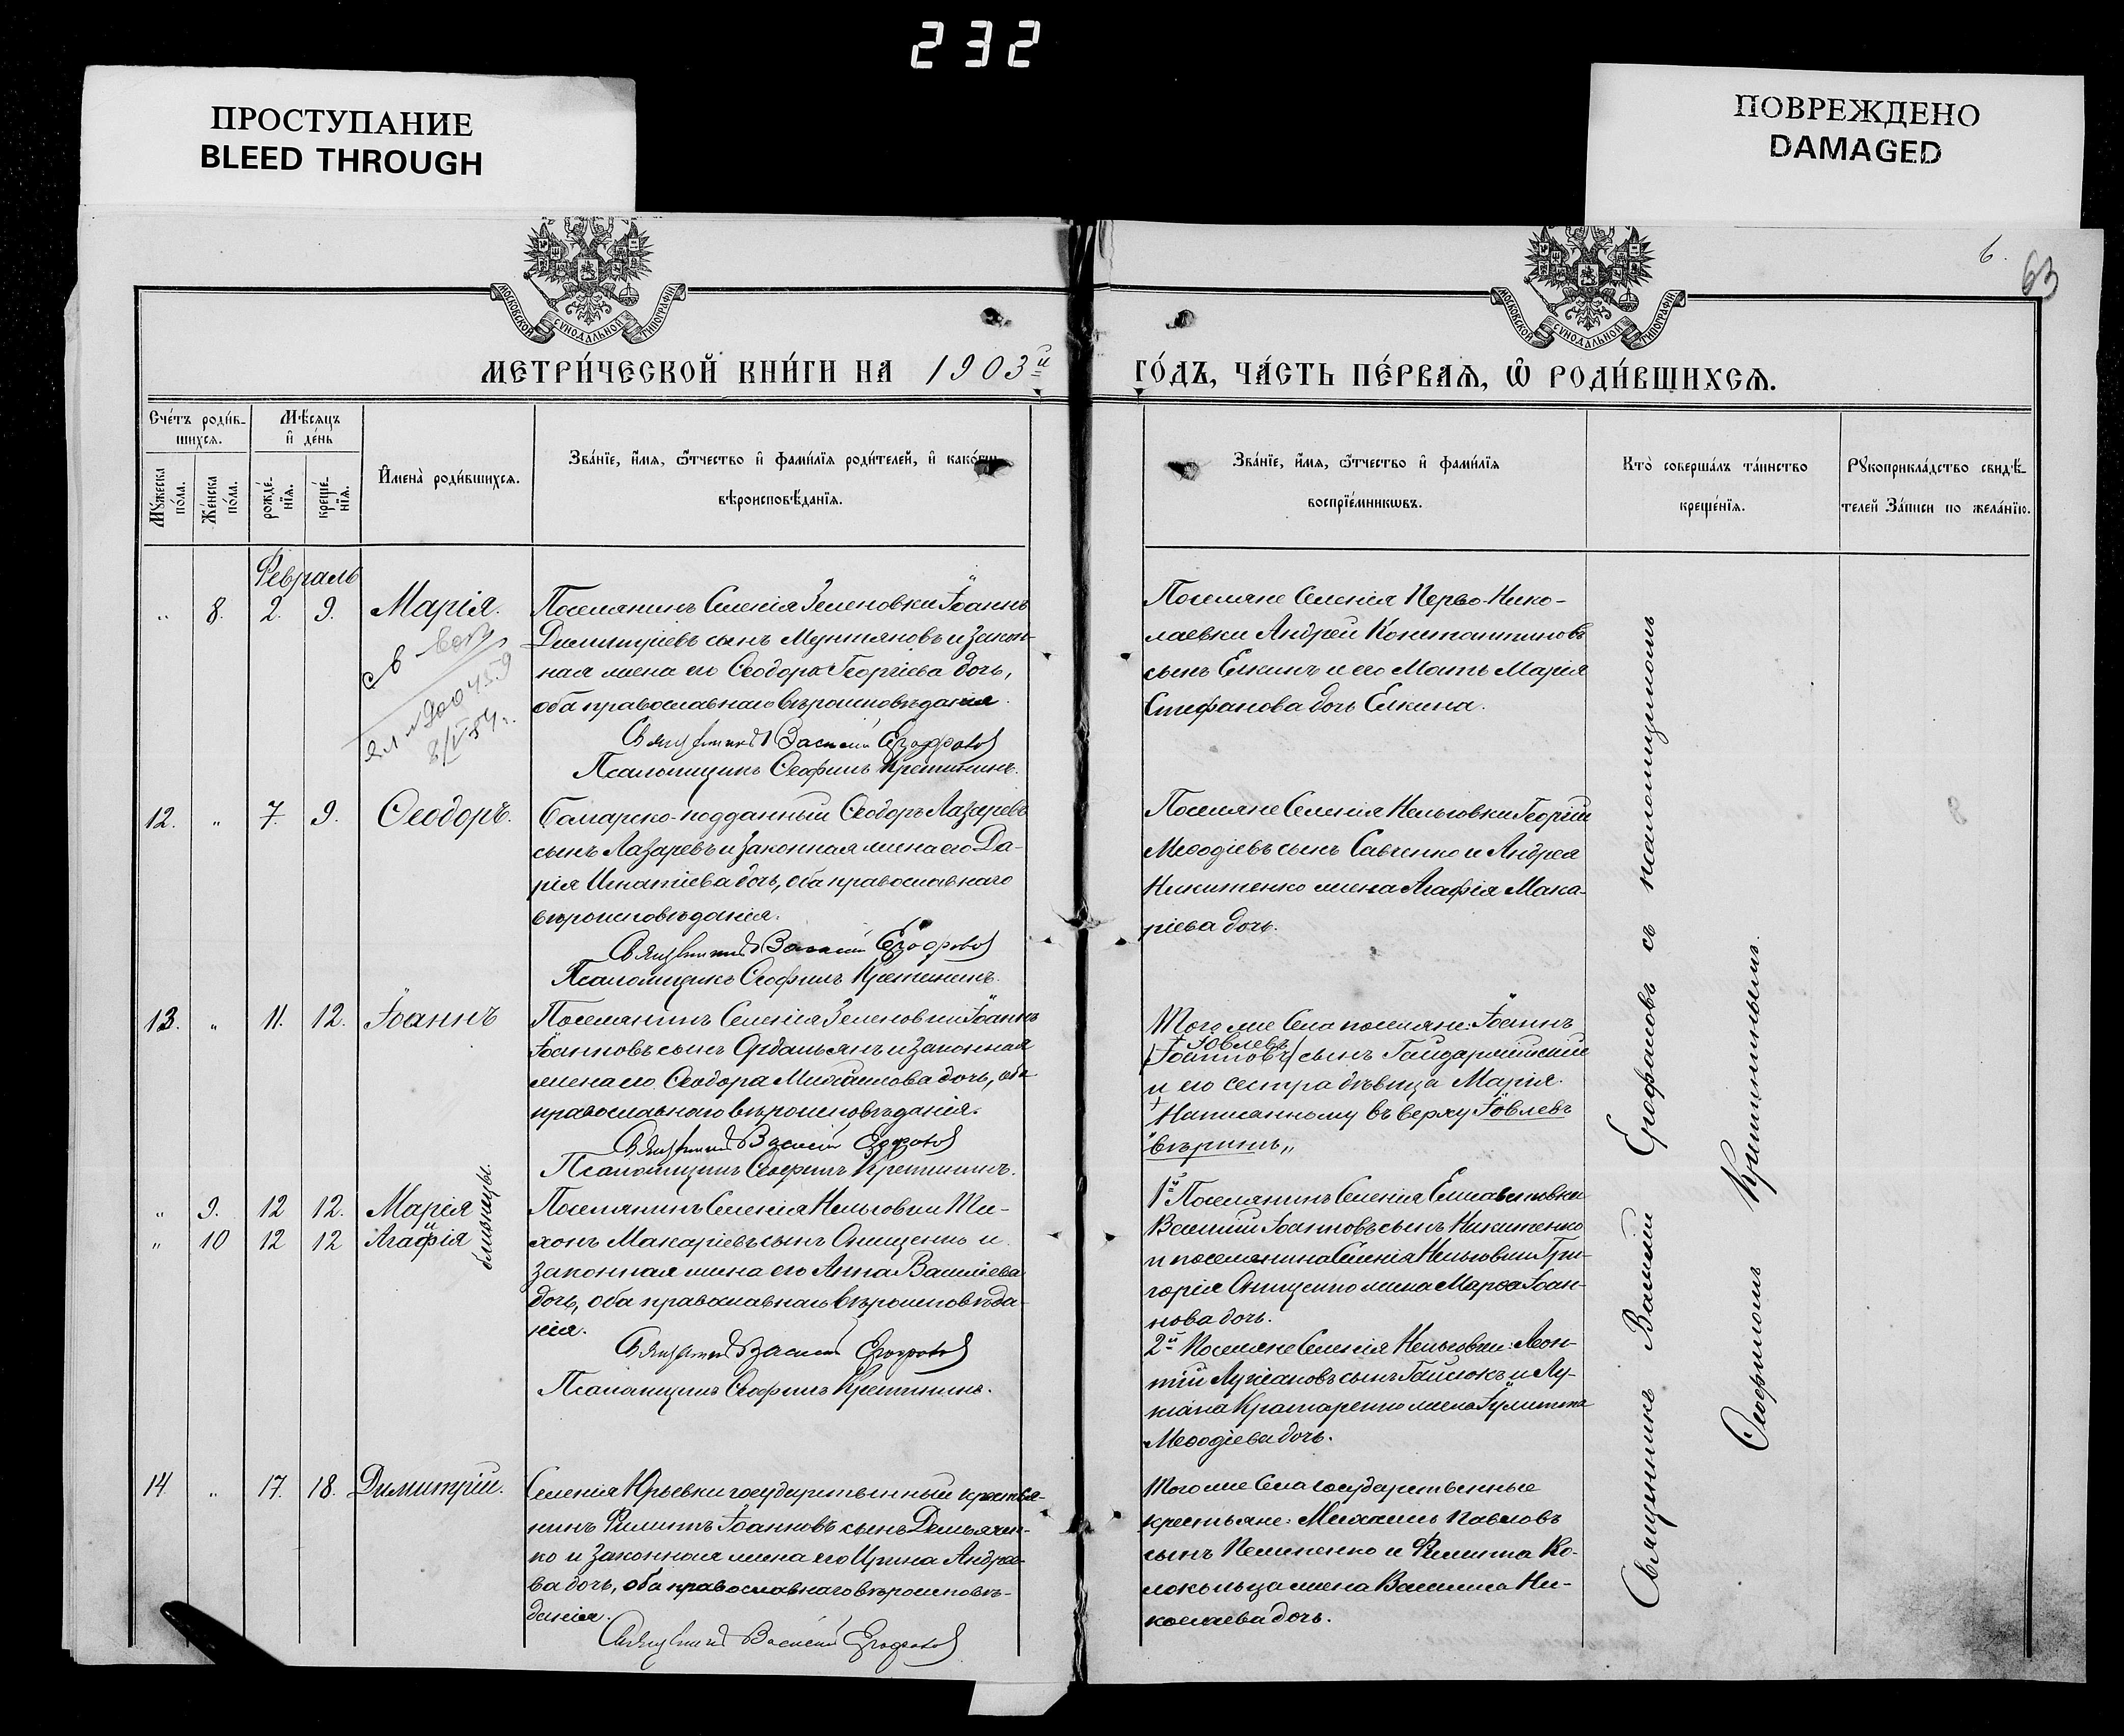 232
ПРОСТУПАНИЕ
BLEED THROUGH
ПОВРЕЖДЕНО
DAMAGED
6.
63
МОСКОВСКОЙ СѴНОДАЛЬНОЙ ТИПОГРАФІИ
МОСКОВСКОЙ СѴНОДАЛЬНОЙ ТИПОГРАФІИ
МЕТРИ́ЧЕСКОЙ КНИ́ГИ НА 1903й
ГО́ДЪ, ЧА́СТЬ ПЕ́РВАЯ, Ѡ РОДИ́ВШИХСЯ.
Сче́тъ роди́в-
шихся.
Мꙋжеска по́ла.
Же́нска по́ла.
Мѣ́сяцъ
и҆ де́нь
рожде́нїя.
креще́нїя.
И҆мена̀ роди́вшихся.
Зва́нїе, и҆́мя, ѻ҆́тчество и҆ фами́лїя роди́телей, и҆ како́гѡ
вѣроисповѣ́данїя.
Зва́нїе, и҆́мя, ѻ҆́тчество и҆ фами́лїя
воспрїе́мникѡвъ.
Кто̀ соверша́лъ та́инство
креще́нїя.
Рꙋкоприкла́дство свидѣ́-
телей За́писи по жела́нїю.
Февраль
„ 8. 2. 9. Марія.
Поселянинъ Селенія Зеленовки Іоаннъ
Димитріевъ сынъ Мунтяновъ и закон-
ная жена его Ѳеодора Георгіева дочь,
оба православнаго вѣроисповѣданія.
Священникъ Василій Ерофаловъ
Псаломщикъ Ѳеофилъ Кретининъ.
Поселяне Селенія Перво-Нико-
лаевки Андрей Константиновъ
сынъ Елкинъ и его Мать Марія
Стефанова дочь Елкина.
12. „ 7. 9. Ѳеодоръ.
подданный Ѳеодоръ Лазаревъ
сынъ Лазаревъ и законная жена его Да-
рія Игнатіева дочь, оба православнаго
вѣроисповѣданія.
Священникъ Василій Ерофаловъ
Псаломщикъ Ѳеофилъ Кретининъ.
Поселяне Селенія Нельговки Георгій
Меѳодіевъ сынъ Савченко и Андрея
Никитенко жена Агафія Мака-
ріева дочь.
13. „ 11. 12. Іоаннъ
Поселянинъ Селенія Зеленовки Іоаннъ
Іоанновъ сынъ и законная
жена его Ѳеодора Михайлова дочь, оба
православнаго вѣроисповѣданія.
Священникъ Василій Ерофаловъ
Псаломщикъ Ѳеофилъ Кретининъ.
Того же Села поселяне: Іоаннъ
Іовлевъ
(Іоанновъ) сынъ Гайдаржійскій
и его сестра дѣвица Марія.
Написанному въ верху Іовлевъ
„вѣрить„
„ 9. 12 12. Марія
„ 10 12 12 Агафія
близнецы.
Поселянинъ Селенія Нельговки Ти-
хонъ Макаріевъ сынъ Онищенко и
законная жена его Анна Василіева
дочь, оба православнаго вѣроисповѣда-
нія.
Священникъ Василій Ерофаловъ
Псаломщикъ Ѳеофилъ Кретининъ.
1й Поселянинъ Селенія Елисаветовки
Василій Іоанновъ сынъ Никитенко
и поселянина Селенія Нельговки Гри-
горія Онищенко жена Марѳа Іоан-
нова дочь.
2й Поселяне Селенія Нельговки: Леон-
тій Лукіановъ сынъ Гайсюкъ и Лу-
кіана Крамаренко жена Іулитта
Меѳодіева дочь.
14. „ 17. 18. Димитрій.
Селенія Юрьевки государственный крестья-
нинъ Филиппъ Іоанновъ сынъ Демьячен-
ко и законная жена его Ирина Андрее-
ва дочь, оба православнаго вѣроисповѣ-
данія.
Священникъ Василій Ерофаловъ
Того же Села государственные
крестьяне: Михаилъ Павловъ
сынъ Пелипенко и Филиппа Ко-
локольца жена Василиса Ни-
колаева дочь.
Священникъ Василій Ерофаловъ съ псаломщикомъ
Ѳеофиломъ Кретининымъ.